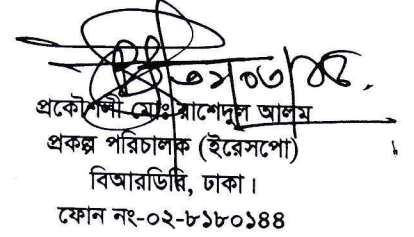 ৩১/০৩/১৫
প্রকৌশলী মোঃ রাশেদুল আলম
প্রকল্প পরিচালক (ইরেসপো)
বিআরডিবি, ঢাকা।
ফোন নং-০২-৮১৮০১৪৪